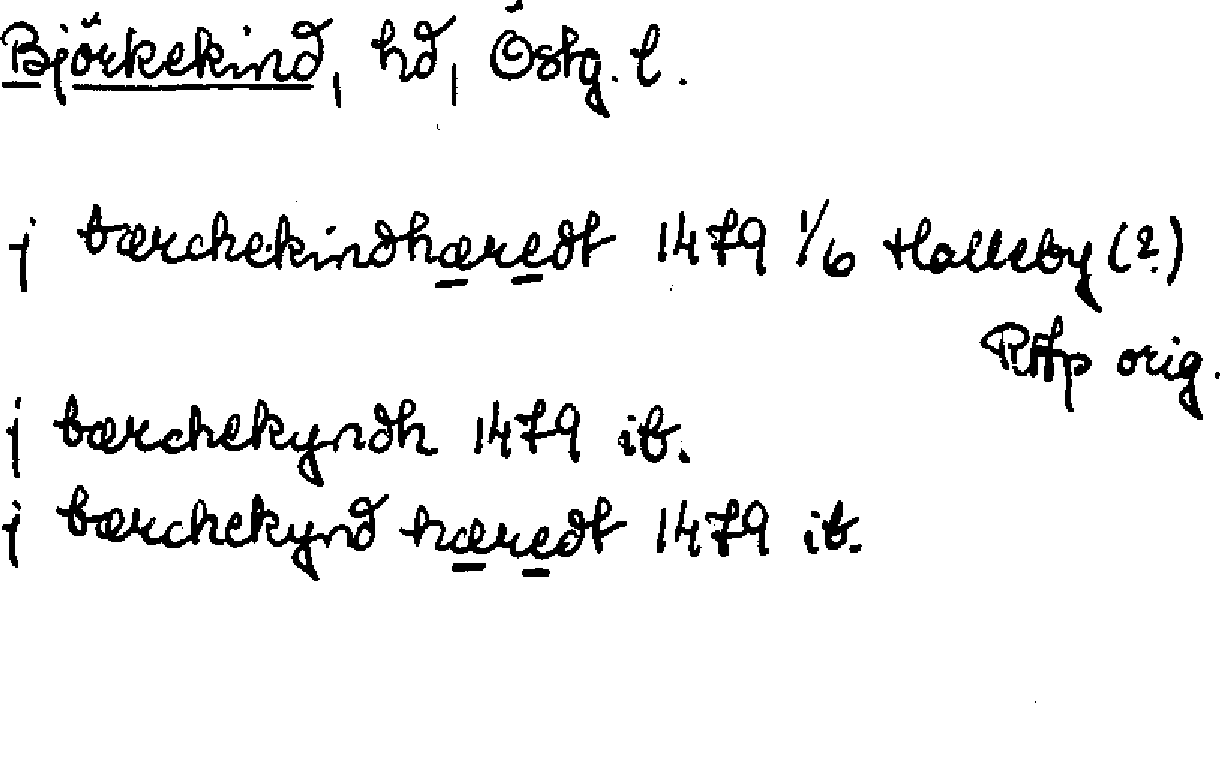 Björkekind, hd, Östg. l.
j bærchekindhæredt 1479 1/6 Halleby (?)
RAp orig.
j bærchekyndh 1479 ib.
j bærchekynd hæredt 1479 ib.